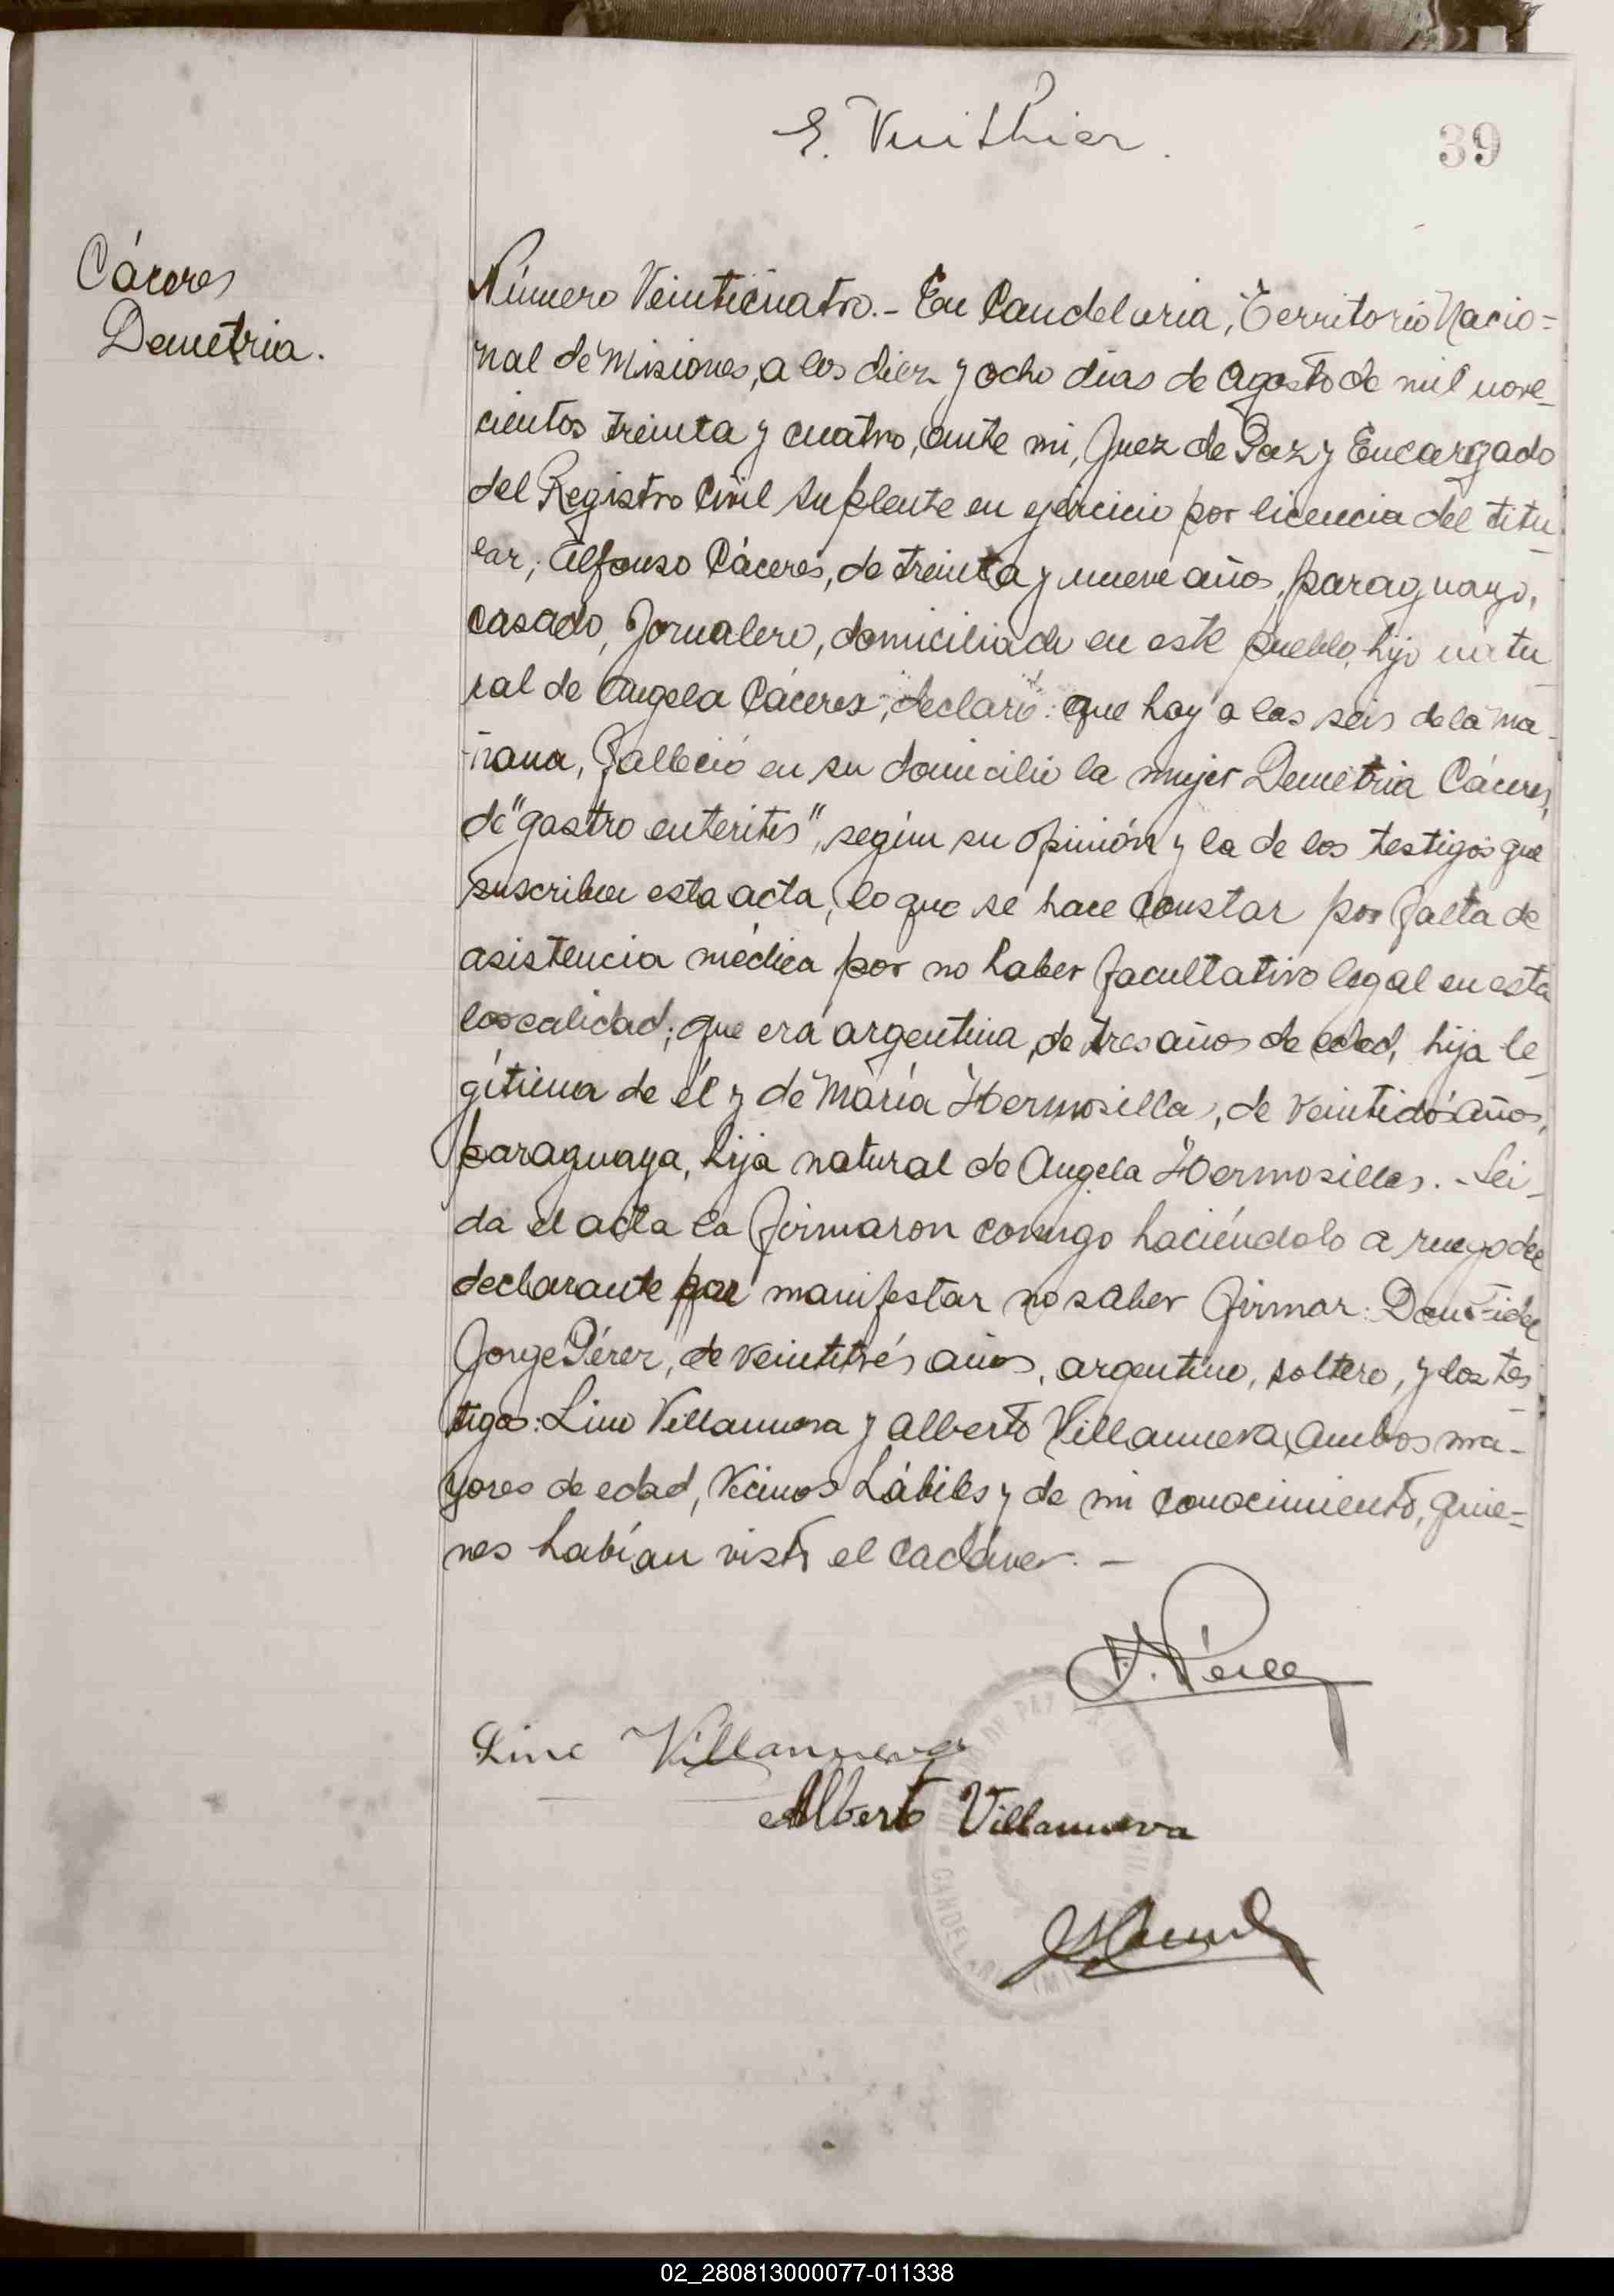 E. Vuithier.
39
Cáceres
Demetria.
Número Veinticuatro.- En Candelaria, Territorio Nacio=
nal de Misiones, a los diez y ocho días de Agosto de mil nove_
cientos treinta y cuatro, ante mi, Juez de Paz y Encargado
del Registro Civil Suplente en ejercicio por licencia del titu_
lar, Alfonso Cáceres, de treinta y nueve años, paraguayo,
casado, Jornalero, domiciliado en este pueblo, hijo natu_
ral de Angela Cáceres, declaró: que hoy a las seis de la ma_
ñana, falleció en su domicilio la mujer Demetria Cáceres,
de "gastro enterites", según su opinión y la de los testigos que
suscriben esta acta, lo que se hace constar por falta de
asistencia médica por no haber facultativo legal en esta
localidad; que era argentina, de tres años de edad, hija le_
gítima de él y de María Hermosilla, de veintidós años,
paraguaya, hija natural de Angela Hermosilla. - Leí_
da el acta la firmaron conmigo haciéndolo a ruego del
declarante por manifestar no saber firmar: Don Fidel
Jorge Pérez, de veintitrés años, argentino, soltero, y los tes_
tigos: Lino Villanueva y Alberto Villanueva, ambos ma-
yores de edad, vecinos hábiles y de mi conocimiento, quie=
nes habían visto el cadáver. -
F. Pérez
Lino Villanueva
Alberto Villanueva
02_280813000077-011338